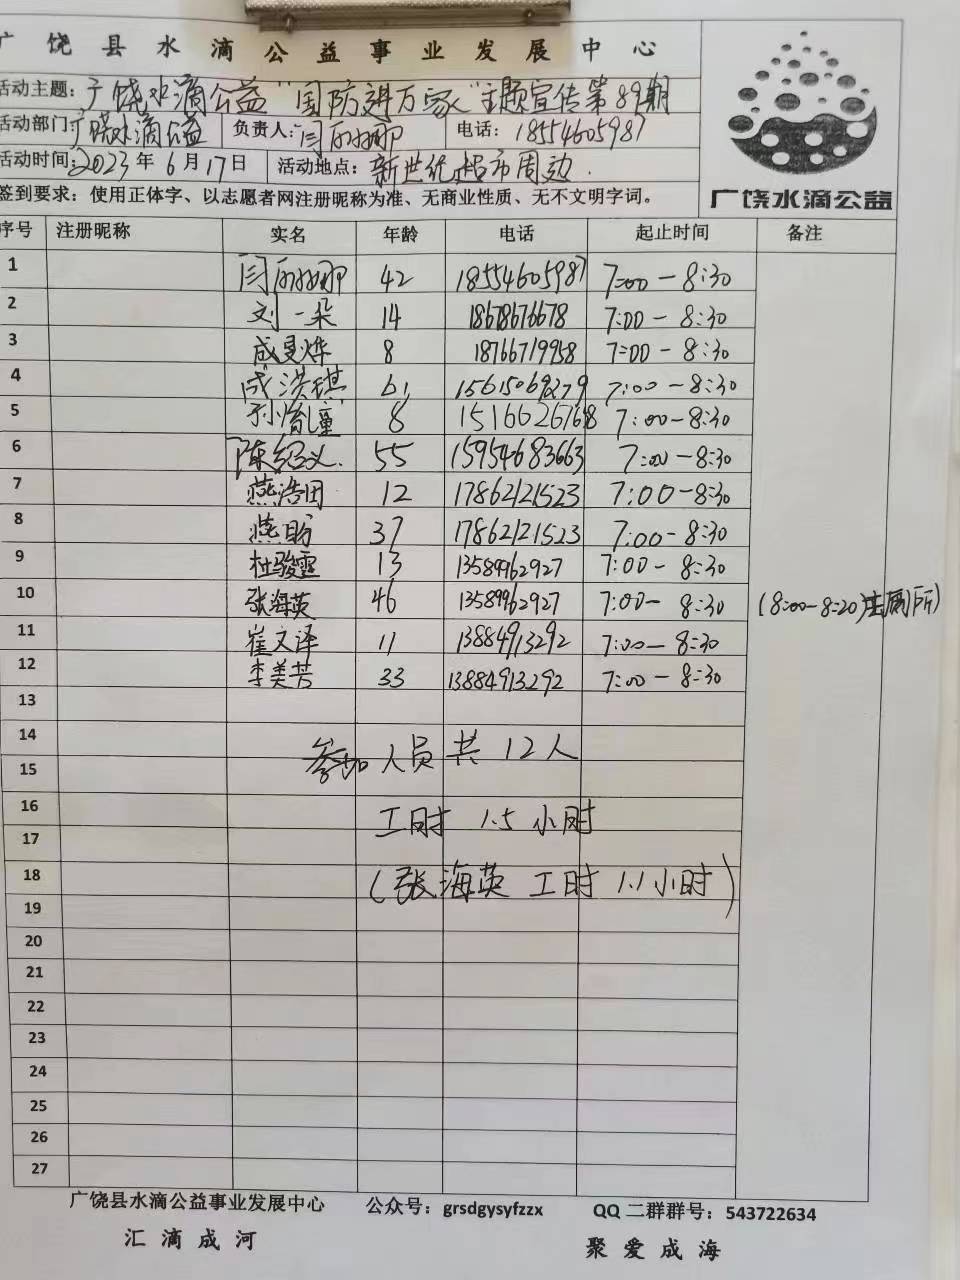 广饶县水滴公益事业发展中心
活动主题：广饶水滴公益“国防进万家”主题宣传第89期
活动部门：广饶水滴公益 负责人：闫丽娜 电话：18554605987
活动时间：2023年6月17日 活动地点：新世纪超市周边.
签到要求：使用正体字、以志愿者网注册昵称为准、无商业性质、无不文明字词。
广饶水滴公益
序号 注册昵称 实名 年龄 电话 起止时间 备注
1 闫丽娜 42 18554605987 7:00-8:30
2 刘一朵 14 18678676678 7:00-8:30
3 成旻烨 8 18766719958 7:00-8:30
4 成洪琪 61 15615069279 7:00-8:30
5 孙胤童 8 15166267668 7:00-8:30
6 陈绍义. 55 15954683663 7:00-8:30
7 燕浩田 12 17862121523 7:00-8:30
8 燕盼 37 17862121523 7:00-8:30
9 杜骏霆 13 13589962927 7:00-8:30
10 张海英 46 13589962927 7:00-8:30 (8:00-8:20去厕所)
11 崔文译 11 13884913292 7:00-8:30
12 李美芳 33 13884913292 7:00-8:30
13
14
参加人员共12人
15
16
工时 1.5小时
17
18
(张海英 工时 1.1小时)
19
20
21
22
23
24
25
26
27
广饶县水滴公益事业发展中心 公众号：grsdgysyfzzx QQ二群群号：543722634
汇滴成河 聚爱成海